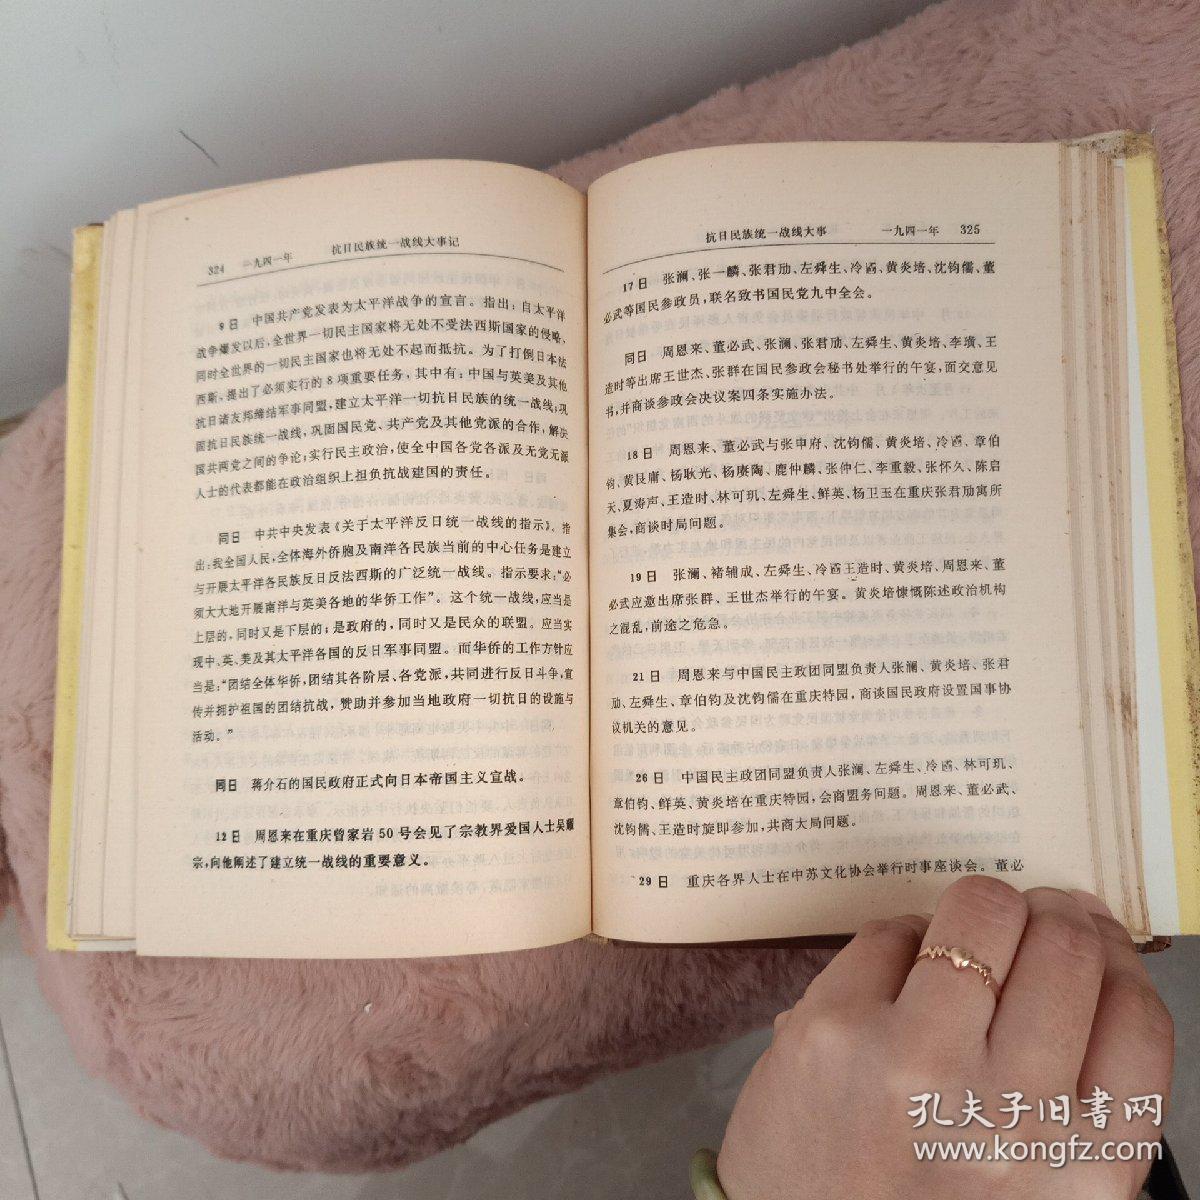 324 一九四一年 抗日民族统一战线大事记
9日 中国共产党发表为太平洋战争的宣言。指出：自太平洋
战争爆发以后，全世界一切民主国家将无处不受法西斯国家的侵略，
同时全世界的一切民主国家也将无处不起而抵抗。为了打倒日本法
西斯，提出了必须实行的8项重要任务，其中有：中国与英美及其他
抗日诸友邦缔结军事同盟，建立太平洋一切抗日民族的统一战线；巩
固抗日民族统一战线，巩固国民党、共产党及其他党派的合作，解决
国共两党之间的争论；实行民主政治，使全中国各党各派及无党无派
人士的代表都能在政治组织上担负抗战建国的责任。
同日 中共中央发表《关于太平洋反日统一战线的指示》。指
出：我全国人民，全体海外侨胞及南洋各民族当前的中心任务是建立
与开展太平洋各民族反日反法西斯的广泛统一战线。指示要求：“必
须大大地开展南洋与英美各地的华侨工作”。这个统一战线，应当是
上层的，同时又是下层的；是政府的，同时又是民众的联盟。应当实
现中、英、美及其太平洋各国的反日军事同盟。而华侨的工作方针应
当是：“团结全体华侨，团结其各阶层、各党派，共同进行反日斗争，宣
传并拥护祖国的团结抗战，赞助并参加当地政府一切抗日的设施与
活动。”
同日 蒋介石的国民政府正式向日本帝国主义宣战。
12日 周恩来在重庆曾家岩50号会见了宗教界爱国人士吴耀
宗，向他阐述了建立统一战线的重要意义。
抗日民族统一战线大事 一九四一年 325
17日 张澜、张一麟、张君劢、左舜生、冷遹、黄炎培、沈钧儒、董
必武等国民参政员，联名致书国民党九中全会。
同日 周恩来、董必武、张澜、张君劢、左舜生、黄炎培、李璜、王
造时等出席王世杰、张群在国民参政会秘书处举行的午宴，面交意见
书，并商谈参政会决议案四条实施办法。
18日 周恩来、董必武与张申府、沈钧儒、黄炎培、冷遹、章伯
钧、黄艮庸、杨耿光、杨赓陶、鹿仲麟、张仲仁、李重毅、张怀久、陈启
天、夏涛声、王造时、林可玑、左舜生、鲜英、杨卫玉在重庆张君劢寓所
集会，商谈时局问题。
19日 张澜、褚辅成、左舜生、冷遹王造时、黄炎培、周恩来、董
必武应邀出席张群、王世杰举行的午宴。黄炎培慷慨陈述政治机构
之混乱，前途之危急。
21日 周恩来与中国民主政团同盟负责人张澜、黄炎培、张君
劢、左舜生、章伯钧及沈钧儒在重庆特园，商谈国民政府设置国事协
议机关的意见。
26日 中国民主政团同盟负责人张澜、左舜生、冷遹、林可玑、
章伯钧、鲜英、黄炎培在重庆特园，会商盟务问题。周恩来、董必武、
沈钧儒、王造时旋即参加，共商大局问题。
29日 重庆各界人士在中苏文化协会举行时事座谈会。董必
孔夫子旧书网
www.kongfz.com